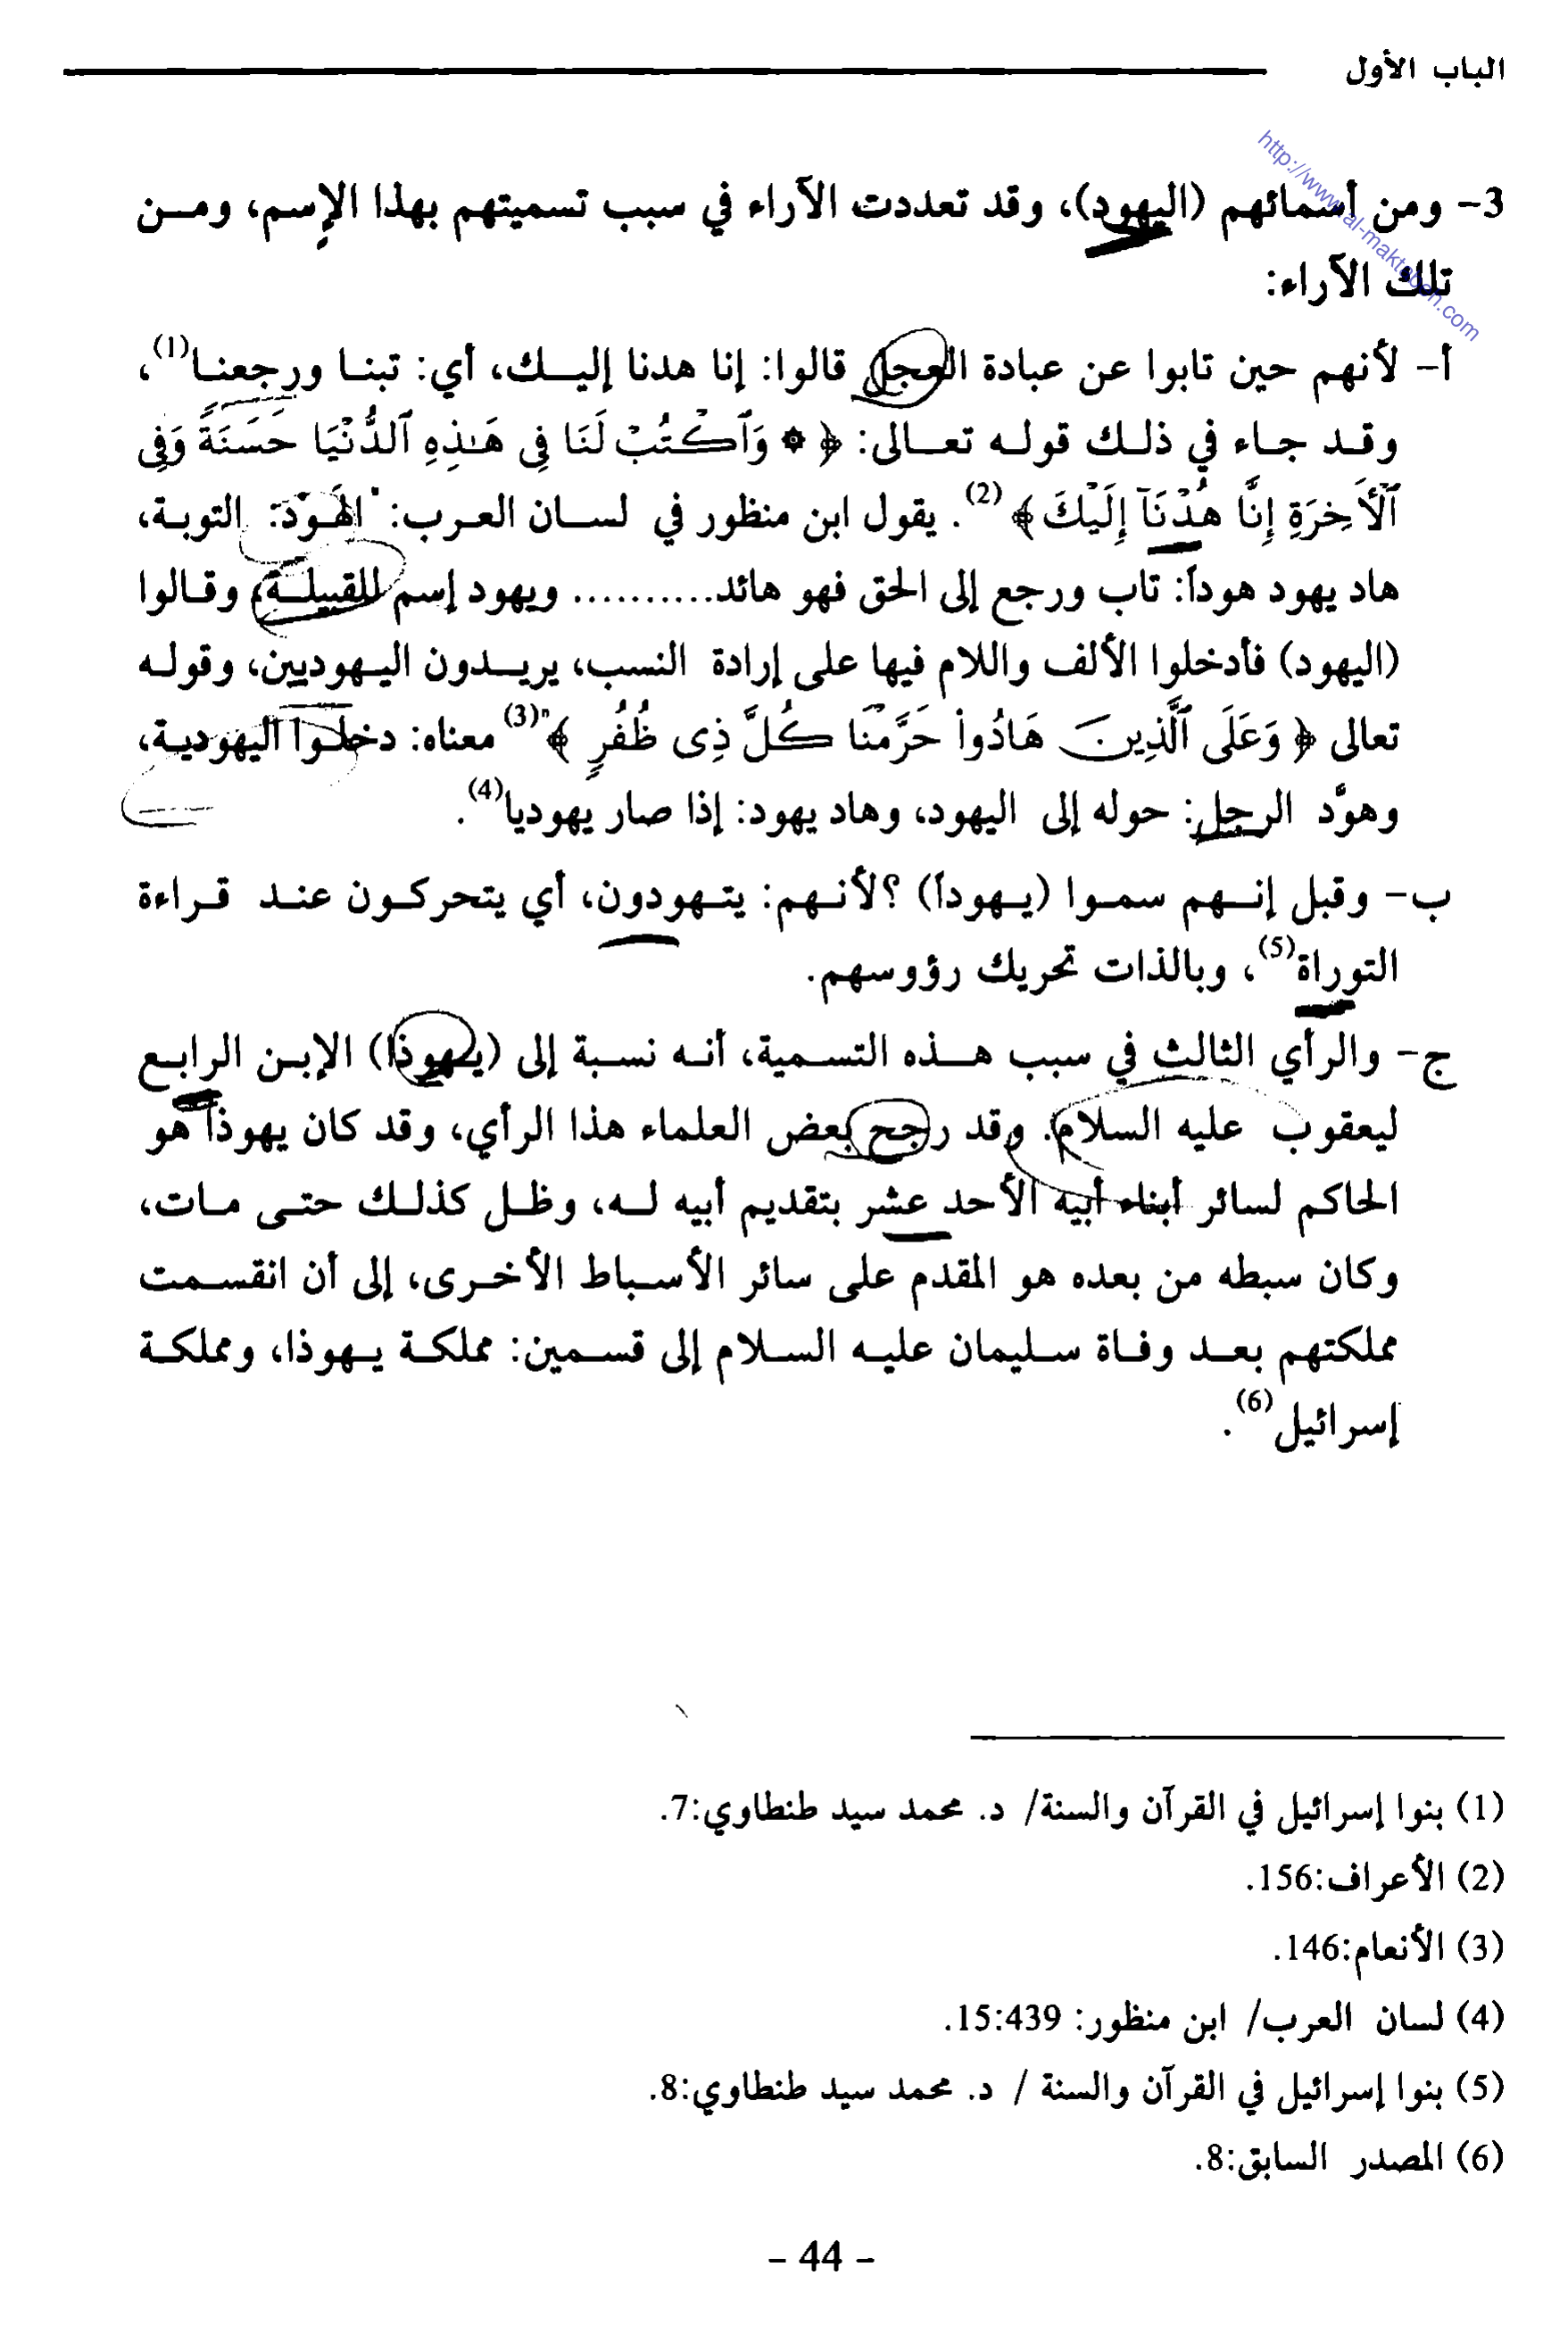 الباب الأول
http://www.al-maktabeh.com
3- ومن أسمائهم (اليهود)، وقد تعددت الآراء في سبب تسميتهم بهذا الإسم، ومن
تلك الآراء:
أ- لأنهم حين تابوا عن عبادة العجل قالوا: إنا هدنا إليك، أي: تبنا ورجعنا(1)،
وقد جاء في ذلك قوله تعالى: ﴿ ۞ وَٱكْتُبْ لَنَا فِى هَـٰذِهِ ٱلدُّنْيَا حَسَنَةً وَفِى
ٱلْأَخِرَةِ إِنَّا هُدْنَآ إِلَيْكَ ﴾(2). يقول ابن منظور في لسان العرب: "الهَوْدَ: التوبة،
هاد يهود هوداً: تاب ورجع إلى الحق فهو هائد.......... ويهود إسم للقبيلة، وقالوا
(اليهود) فأدخلوا الألف واللام فيها على إرادة النسب، يريدون اليهوديين، وقوله
تعالى ﴿ وَعَلَى ٱلَّذِينَ هَادُواْ حَرَّمْنَا كُلَّ ذِى ظُفُرٍ ﴾"(3) معناه: دخلوا اليهودية،
وهوَّد الرجل: حوله إلى اليهود، وهاد يهود: إذا صار يهوديا(4).
ب- وقبل إنهم سموا (يهوداً) ؟لأنهم: يتهودون، أي يتحركون عند قراءة
التوراة(5)، وبالذات تحريك رؤوسهم.
ج- والرأي الثالث في سبب هذه التسمية، أنه نسبة إلى (يهوذا) الإبن الرابع
ليعقوب عليه السلام. وقد رجح بعض العلماء هذا الرأي، وقد كان يهوذا هو
الحاكم لسائر أبناء أبيه الأحد عشر بتقديم أبيه له، وظل كذلك حتى مات،
وكان سبطه من بعده هو المقدم على سائر الأسباط الأخرى، إلى أن انقسمت
مملكتهم بعد وفاة سليمان عليه السلام إلى قسمين: مملكة يهوذا، ومملكة
إسرائيل(6).
(1) بنوا إسرائيل في القرآن والسنة/ د. محمد سيد طنطاوي:7.
(2) الأعراف:156.
(3) الأنعام:146.
(4) لسان العرب/ ابن منظور: 15:439.
(5) بنوا إسرائيل في القرآن والسنة / د. محمد سيد طنطاوي:8.
(6) المصدر السابق:8.
- 44 -